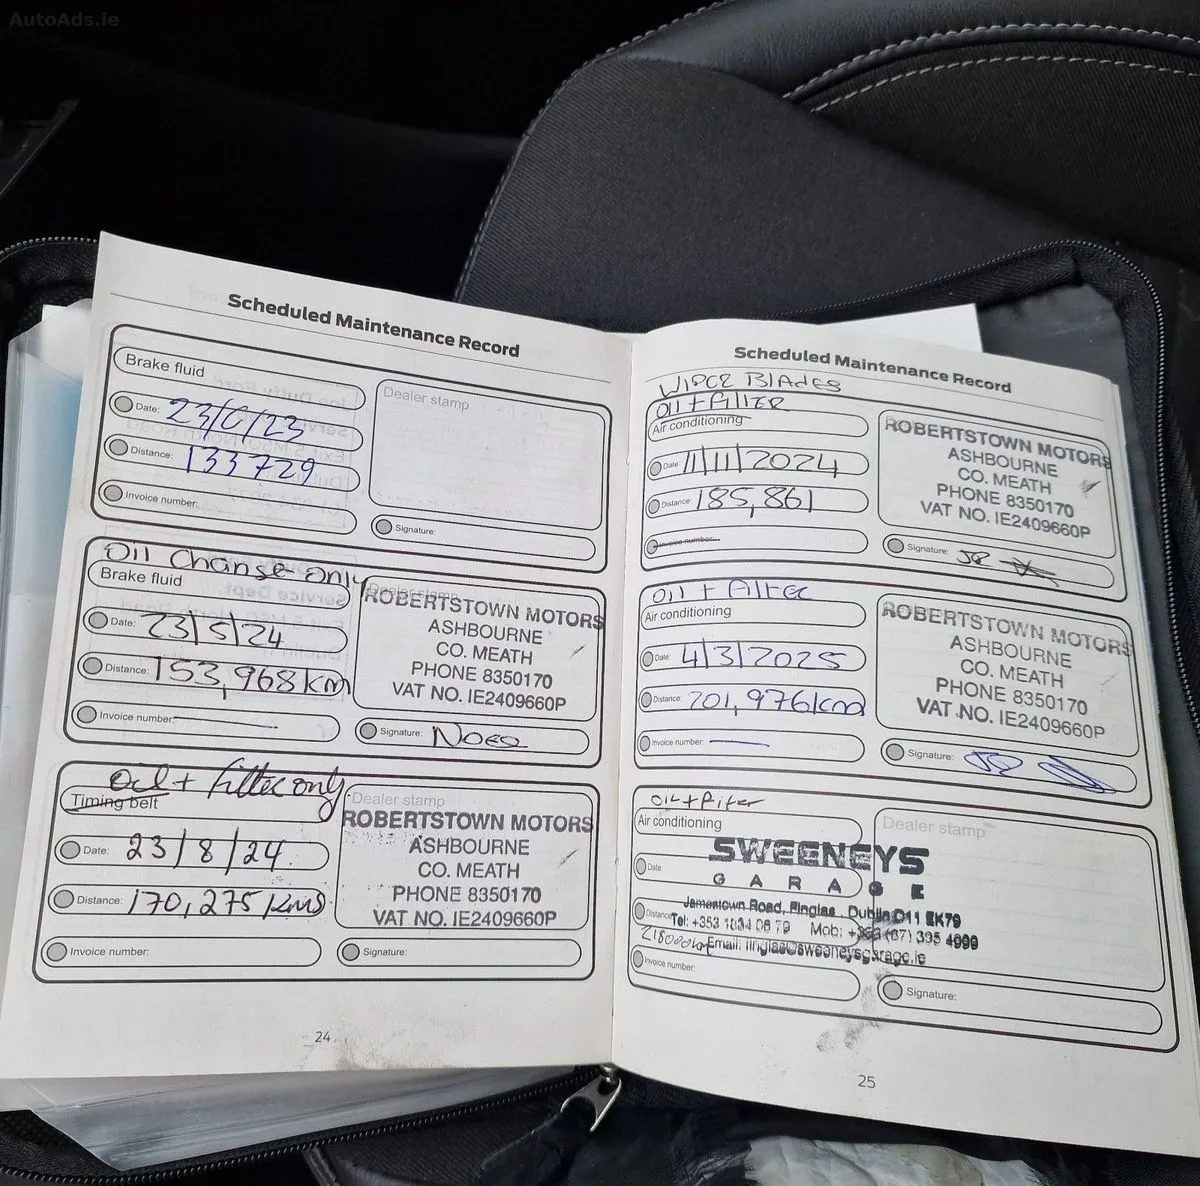 AutoAds.ie
Scheduled Maintenance Record
Brake fluid
Date: 23/6/23
Distance: 133729
Invoice number:
Dealer stamp
Signature:
Oil Change only
Brake fluid
Date: 23/5/24
Distance: 153,968km
Invoice number:
Dealer stamp
ROBERTSTOWN MOTORS
ASHBOURNE
CO. MEATH
PHONE 8350170
VAT NO. IE2409660P
Signature:
Oil + Filter only
Timing belt
Date: 23/8/24
Distance: 170,275 kms
Invoice number:
Dealer stamp
ROBERTSTOWN MOTORS
ASHBOURNE
CO. MEATH
PHONE 8350170
VAT NO. IE2409660P
Signature:
24
Scheduled Maintenance Record
WIPER BLADES
OIL + FILTER
Air conditioning
Date: 11/11/2024
Distance: 185,861
Invoice number:
ROBERTSTOWN MOTORS
ASHBOURNE
CO. MEATH
PHONE 8350170
VAT NO. IE2409660P
Signature:
Oil + Filter
Air conditioning
Date: 4/3/2025
Distance: 201,976km
Invoice number:
ROBERTSTOWN MOTORS
ASHBOURNE
CO. MEATH
PHONE 8350170
VAT NO. IE2409660P
Signature:
Oil + Filter
Air conditioning
Date:
Distance:
218000km
Invoice number:
Dealer stamp
SWEENEYS
GARAGE
Jamestown Road, Finglas, Dublin D11 EK79
Tel: +353 1834 06 79 Mob: +353 (87) 395 4999
Email: finglas@sweeneysgarage.ie
Signature:
25